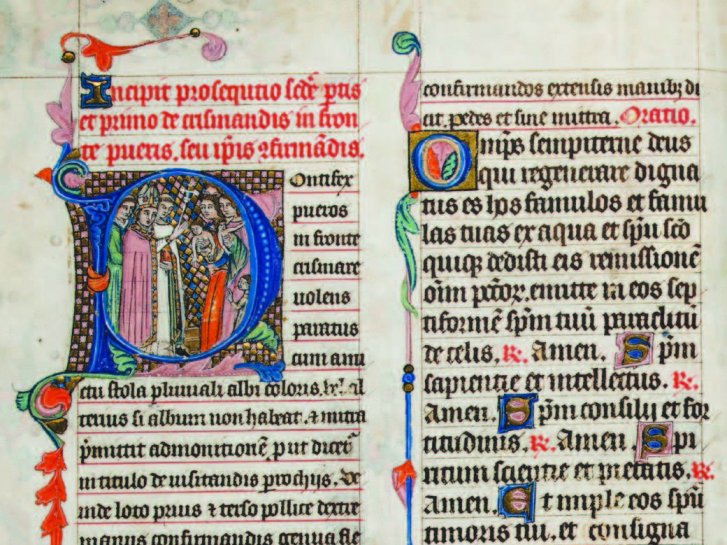 Incipit prosequtio sedẽ ptis
et primo de crismandis in fron
te pueris, seu ip̃is ꝯfirmãdis.
Pontifex
pueros
in fronte
crismare
uolens
paratus
cum ami
ctu stola pluuiali albi coloris, ul̃ al
terius si album non habeat, ⁊ mitra
p̃mittit admonitionẽ, put dicet̃
in titulo de uisitandis parochijs, De
inde loto prius ⁊ terso pollice dextre
manus confirmandis genua fle
confirmandos extensis manibꝫ di
cit. pedes et sine mittra. Oratio.
Omp̃s sempiterne deus
qui regenerare digna
tus es hos famulos et famu
las tuas ex aqua et sp̃u sc̃o
quiqꝫ dedisti eis remissionẽ
oĩm pctõꝝ. emitte in eos sep
tiformẽ sp̃m tuũ paraclitũ
de celis. ℟. Amen. Sp̃m
sapientie et intellectus. ℟.
Amen. Sp̃m consilij et for
titudinis. ℟. Amen Spi
ritum scientie et pietatis. ℟.
Amen. Et imple eos sp̃u
timoris tui, et consigna